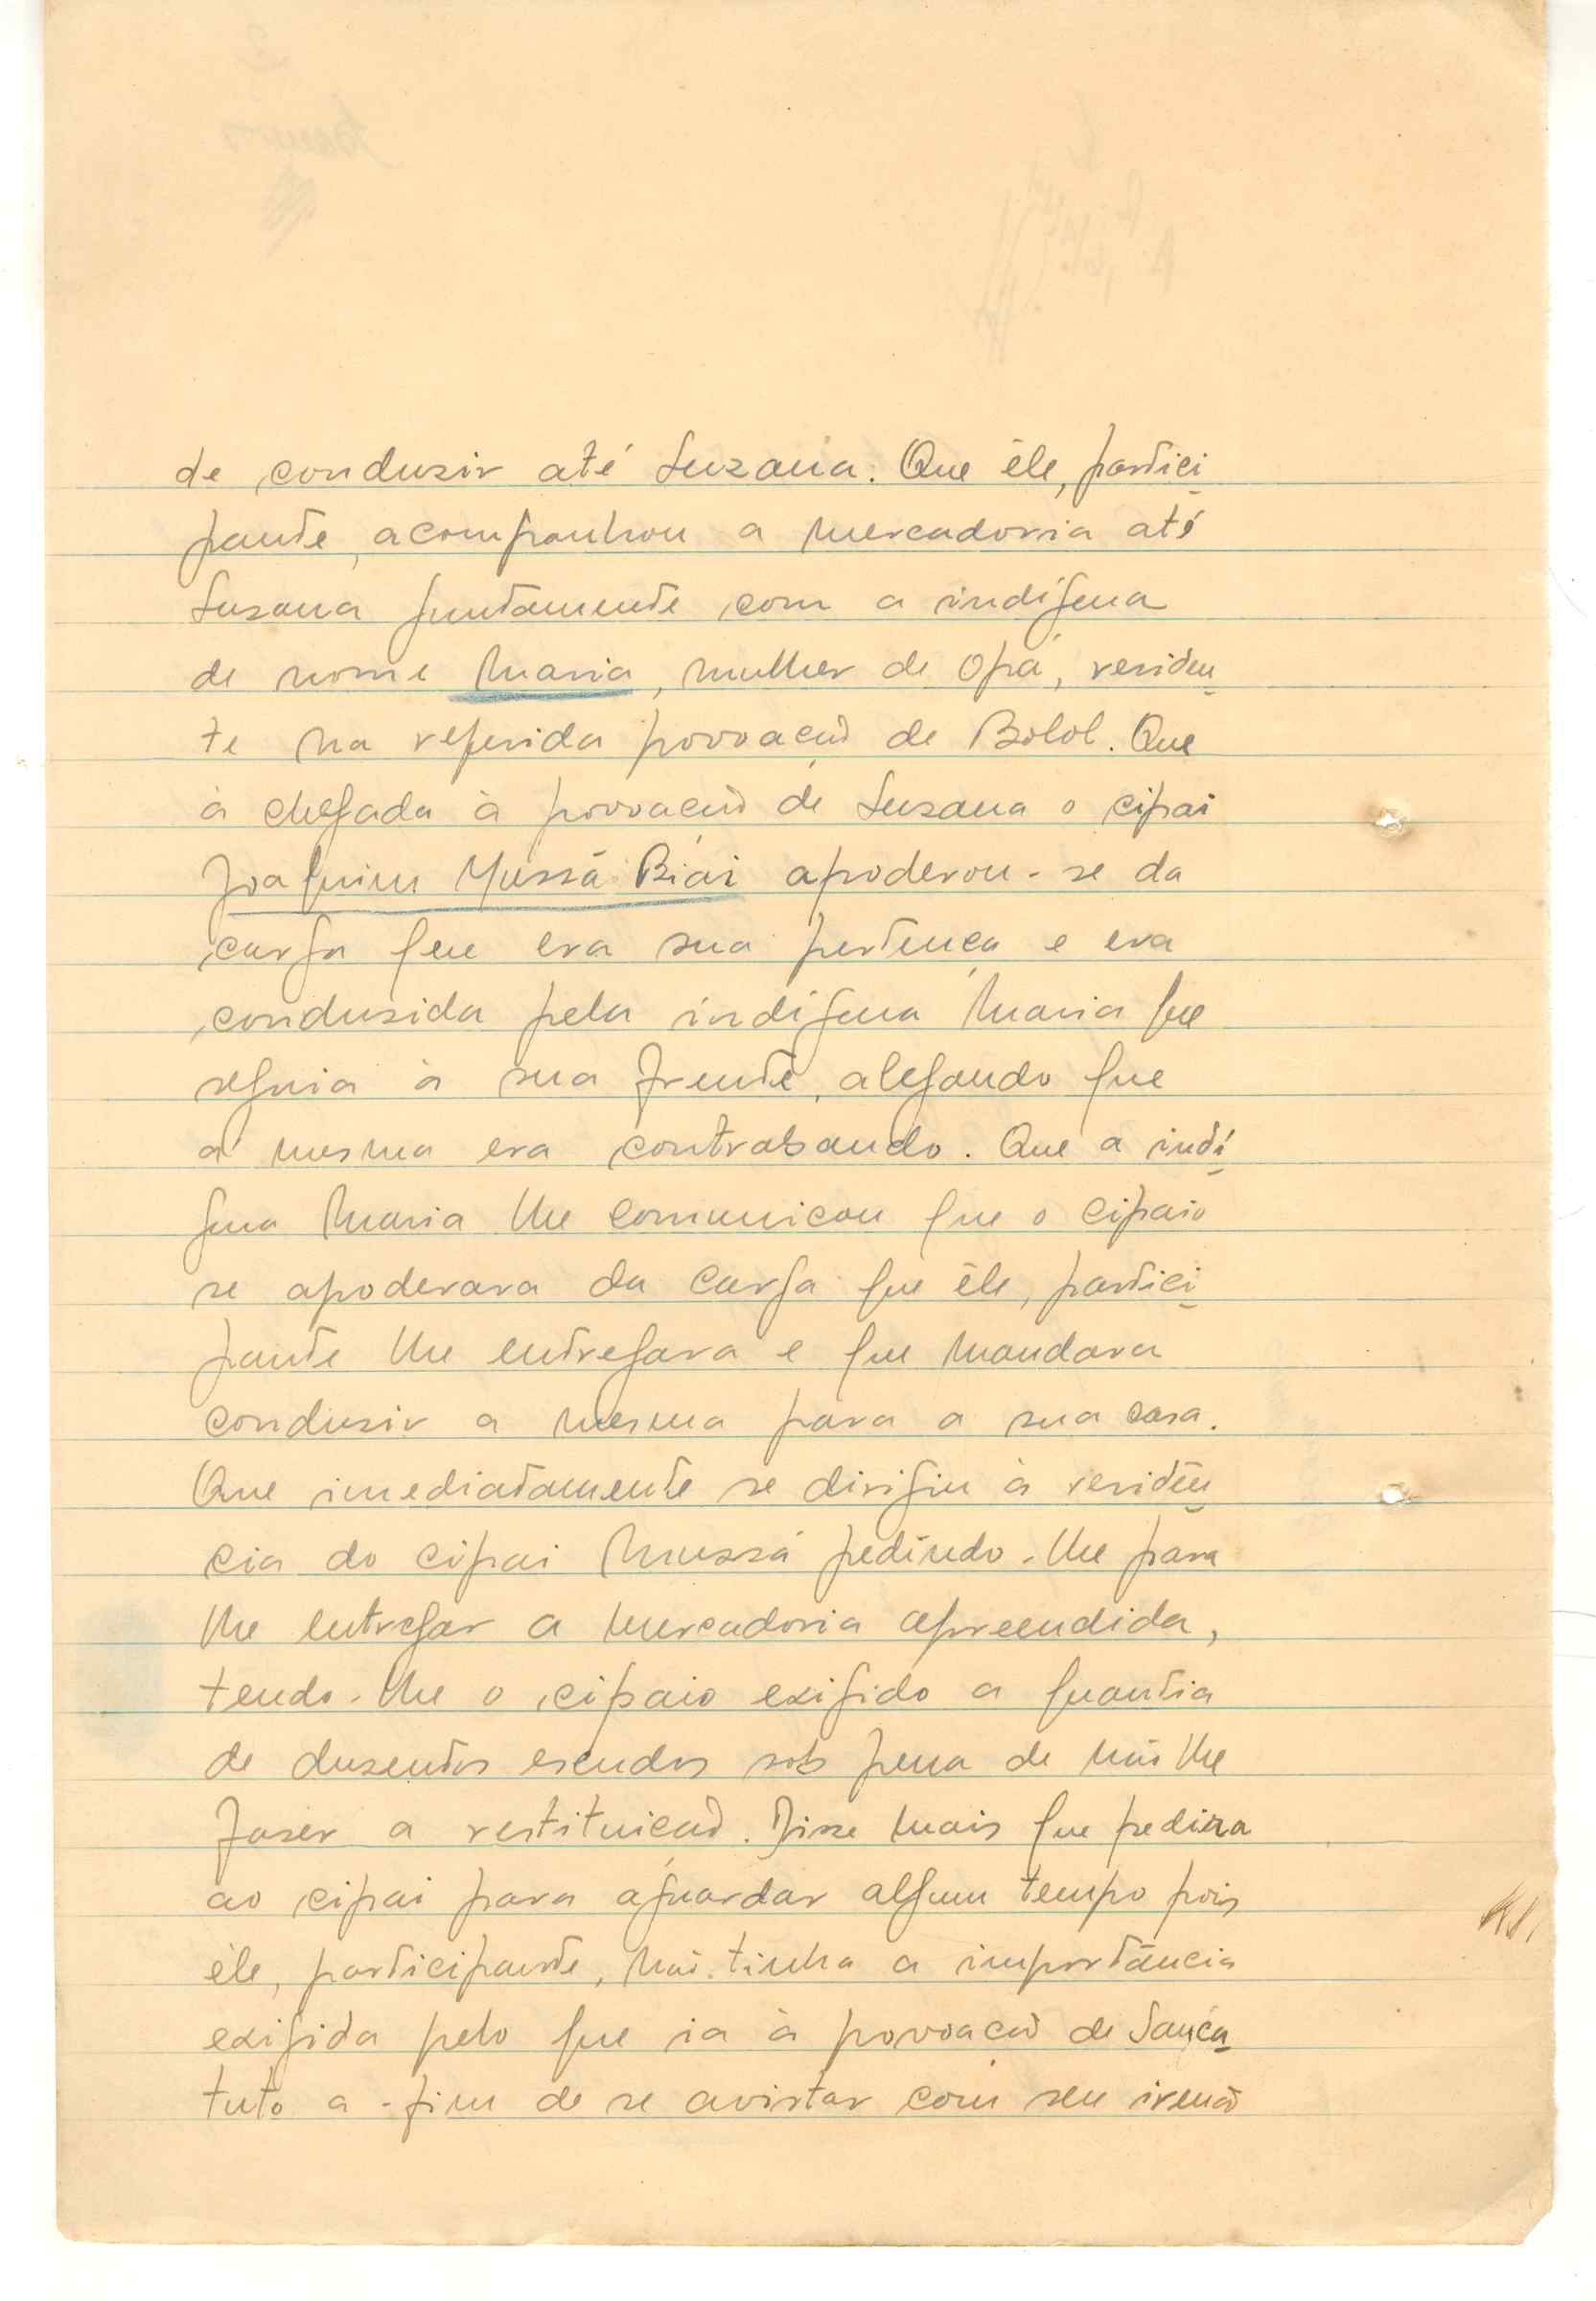 de conduzir até Suzana. Que êle, partici
pante, acompanhou a mercadoria até
Suzana juntamente com a indígena
de nome Maria, mulher de Opá, residen
te na referida povoação de Bolol. Que
à chegada à povoação de Suzana o cipai
Joaquim Mussá Biái apoderou-se da
carga que era sua pertença e era
conduzida pela indígena Maria que
seguia à sua frente, alegando que
a mesma era contrabando. Que a indí
gena Maria lhe comunicou que o cipaio
se apoderara da carga que êle, partici
pante lhe entregara e que mandara
conduzir a mesma para a sua casa.
Que imediatamente se dirigiu à residên
cia do cipai Mussá pedindo-lhe para
lhe entregar a mercadoria apreendida,
tendo-lhe o cipaio exigido a quantia
de duzentos escudos sob pena de não lhe
fazer a restituição. Disse mais que pedira
ao cipai para aguardar algum tempo pois
êle, participante, não tinha a importância
exigida pelo que ia à povoação de Sanca
tuto a-fim de se avistar com seu irmão